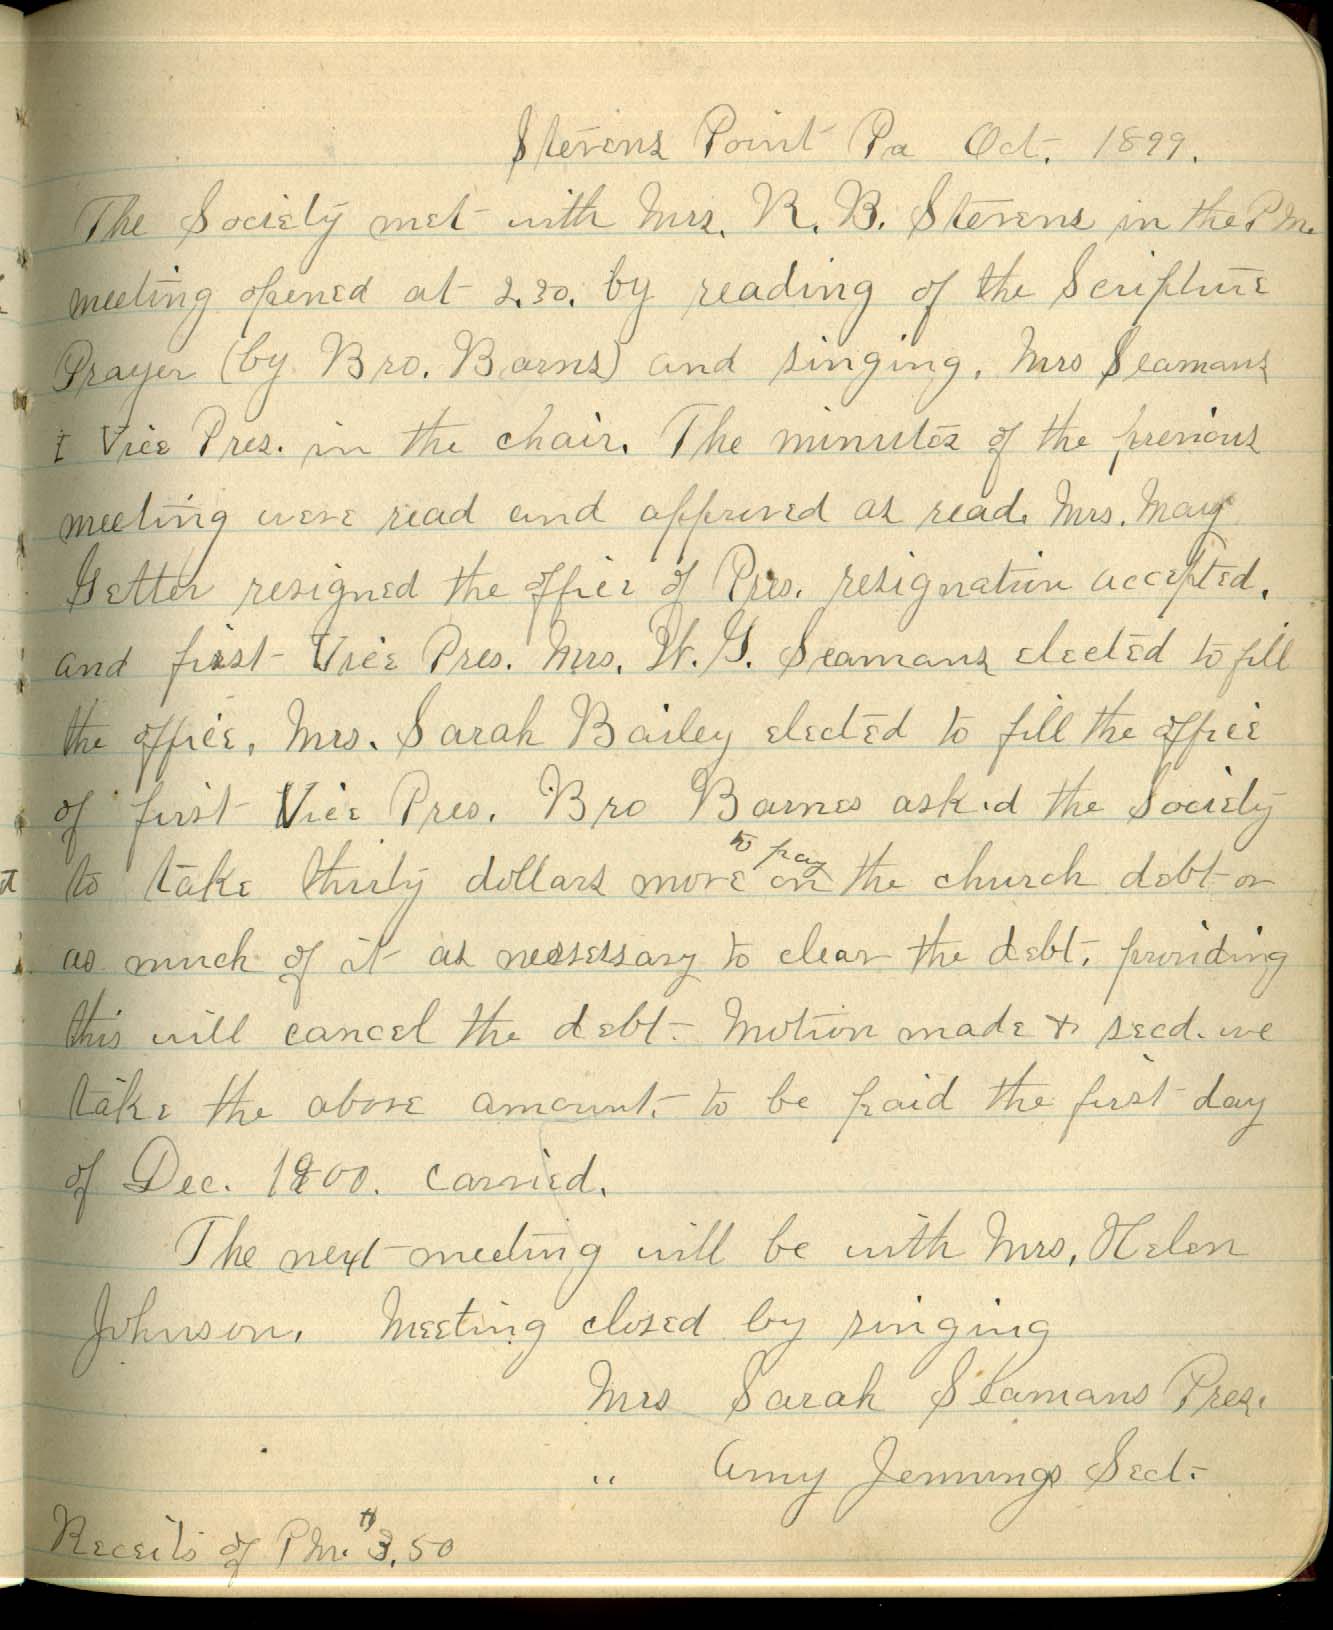 Stevens Point Pa Oct. 1899.
The Society met with Mrs. R. B. Stevens in the P.M.
meeting opened at 2.30. by reading of the Scripture
Prayer (by Bro. Barns) and singing. Mrs Seamans
I Vice Pres. in the chair. The minutes of the previous
meeting were read and approved as read. Mrs. May
Getter resigned the office of Pres. resignation accepted.
and first Vice Pres. Mrs. W. G. Seamans elected to fill
the office, Mrs. Sarah Bailey elected to fill the office
of first Vice Pres. Bro Barnes asked the Society
to pay
to take thirty dollars more on the church debt or
as much of it as nessessary to clear the debt. providing
this will cancel the debt. Motion made & secd. we
take the above amount. to be paid the first day
of Dec. 1900. carried.
The next meeting will be with Mrs. Helen
Johnson. Meeting closed by singing
Mrs Sarah Seamans Pres.
" Amy Jennings Sect.
Receits of P M. $3.50